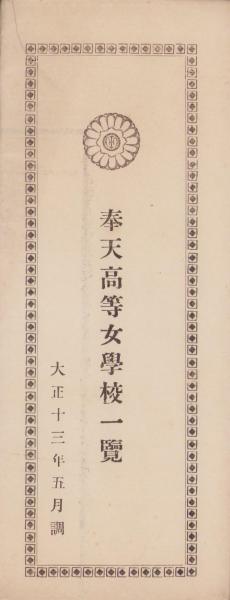 奉天高等女學校一覽
大正十三年五月調